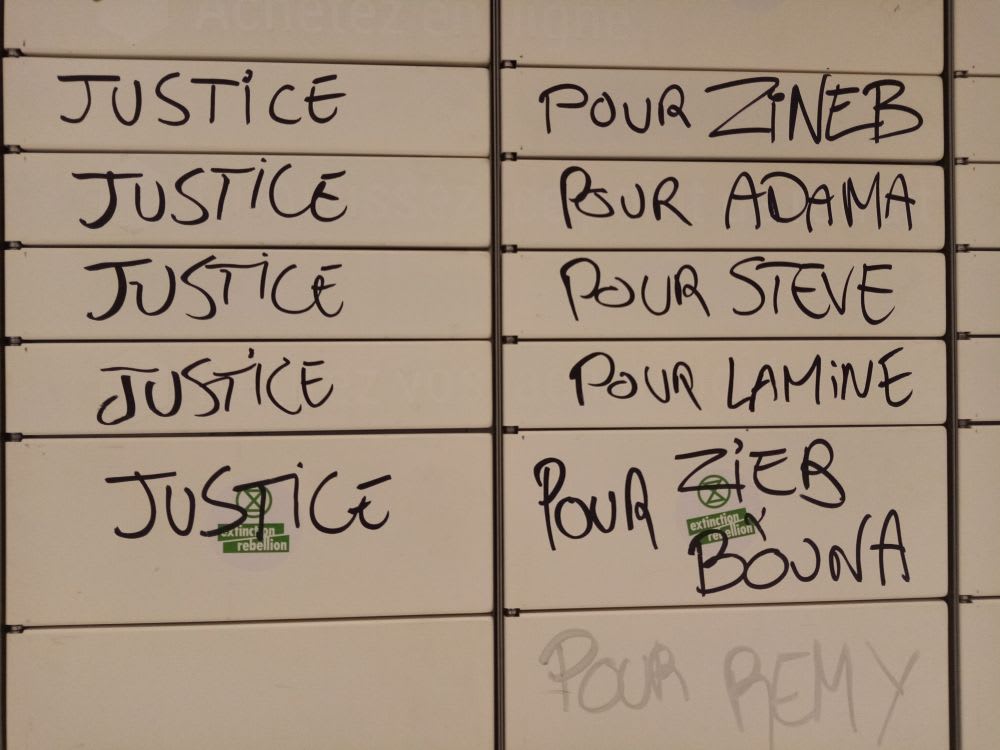 Achetez en ligne
JUSTICE POUR ZINEB
JUSTICE POUR ADAMA
JUSTICE POUR STEVE
JUSTICE POUR LAMINE
JUSTICE POUR ZIEB
& BOUNA
extinction
rebellion
extinction
rebellion
POUR REMY